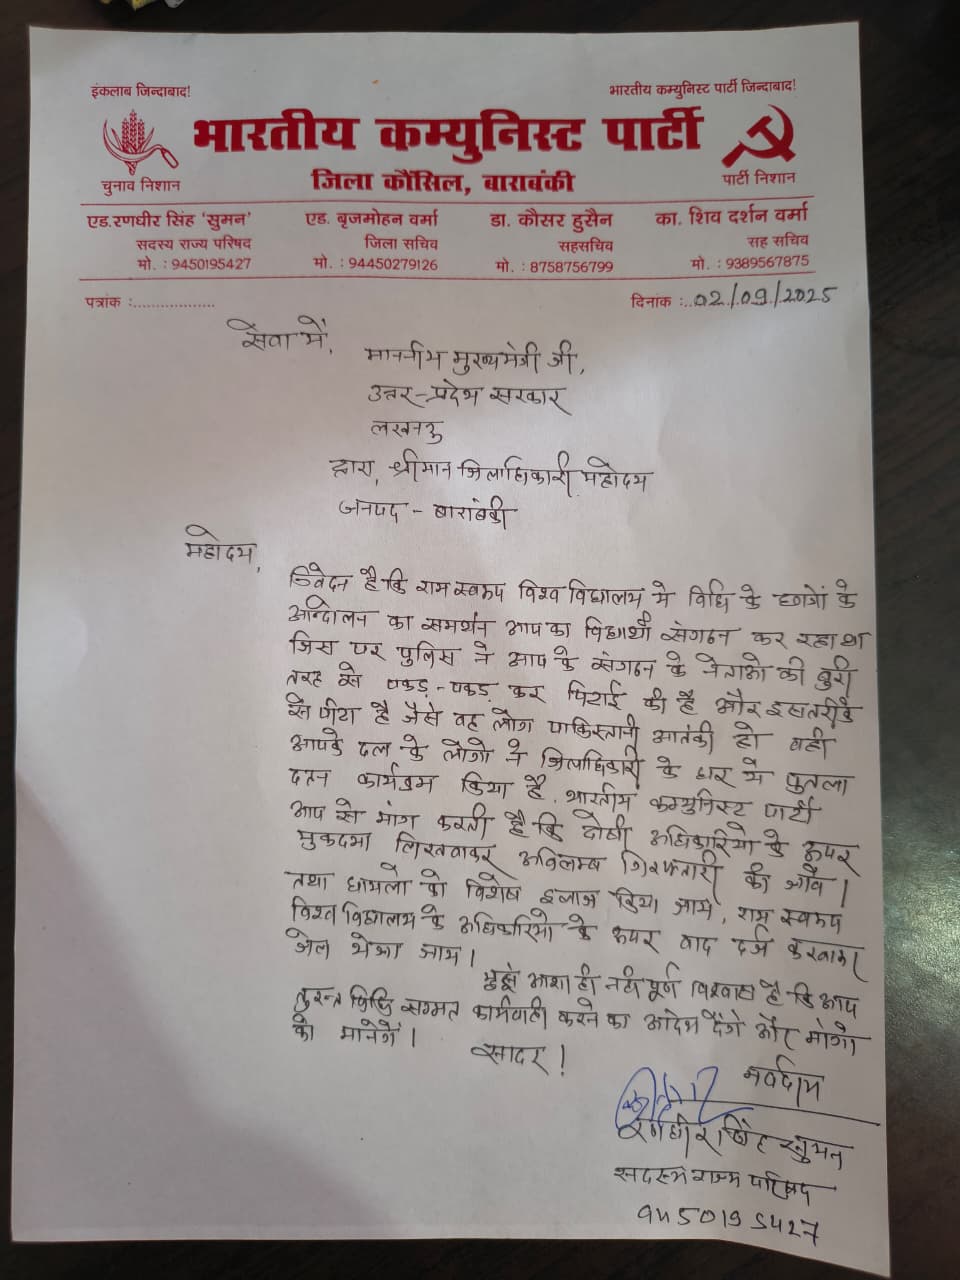 इंकलाब जिन्दाबाद!
भारतीय कम्युनिस्ट पार्टी जिन्दाबाद!
भारतीय कम्युनिस्ट पार्टी
जिला कौंसिल, बाराबंकी
चुनाव निशान
पार्टी निशान
एड.रणधीर सिंह 'सुमन'
सदस्य राज्य परिषद
मो. : 9450195427
एड. बृजमोहन वर्मा
जिला सचिव
मो. : 94450279126
डा. कौसर हुसैन
सहसचिव
मो. : 8758756799
का. शिव दर्शन वर्मा
सह सचिव
मो. : 9389567875
पत्रांक :..................
दिनांक :..02/09/2025
सेवा में,
माननीय मुख्यमंत्री जी,
उत्तर-प्रदेश सरकार
लखनऊ
द्वारा, श्रीमान जिलाधिकारी महोदय
जनपद - बाराबंकी
महोदय,
निवेदन है कि राम स्वरूप विश्व विद्यालय मे विधि के छात्रों के
आन्दोलन का समर्थन आपका विद्यार्थी संगठन कर रहा था
जिस पर पुलिस ने आप के संगठन के नेताओ की बुरी
तरह से पकड़-पकड़ कर पिटाई की है और इसतरीके
से पीटा है जैसे वह लोग पाकिस्तानी आतंकी हो वही
आपके दल के लोगो ने जिलाधिकारी के घर पे पुतला
दहन कार्यक्रम किया है. भारतीय कम्युनिस्ट पार्टी
आप से मांग करती है कि दोषी अधिकारियो के ऊपर
मुकदमा लिखवाकर अविलम्ब गिरफ्तारी की जावे।
तथा घायलो को विशेष इलाज दिया जाय, राम स्वरूप
विश्व विद्यालय के अधिकारियो के ऊपर वाद दर्ज करवाकर
जेल भेजा जाय।
मुझे आशा ही नही पूर्ण विश्वास है कि आप
तुरन्त विधि सम्मत कार्यवाही करने का आदेश देंगे और मांगो
को मानेगें।
सादर!
भवदीय
रणधीर सिंह सुमन
सदस्य राज्य परिषद
9450195427